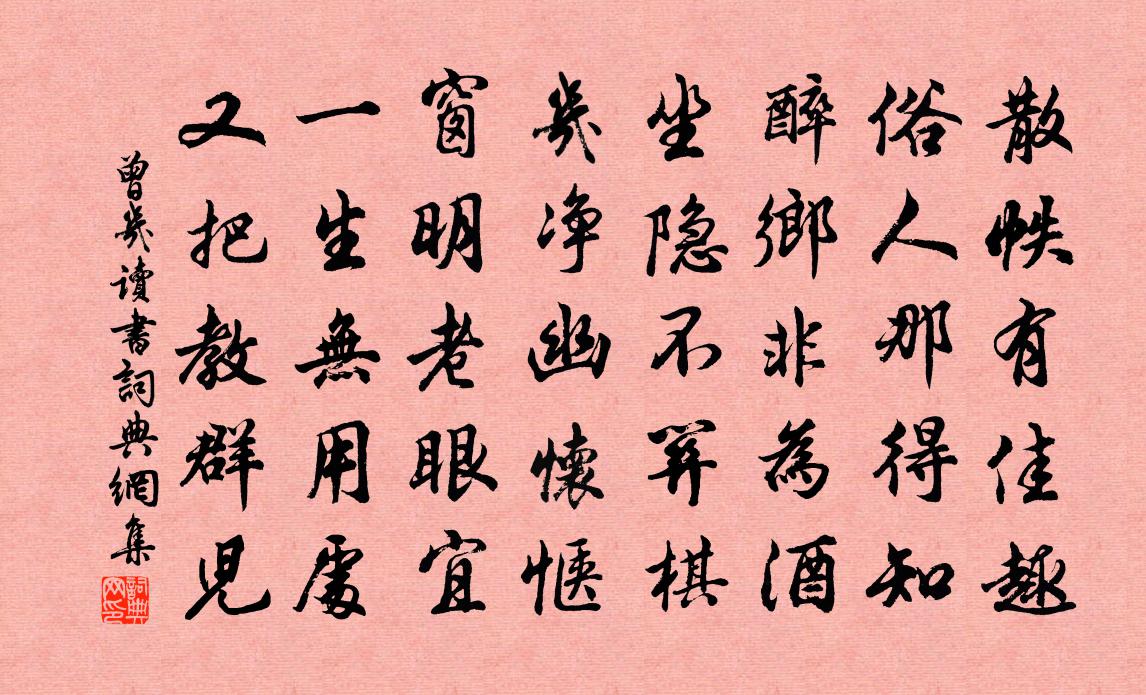 散帙有佳趣
俗人那得知
醉鄉非為酒
坐隐不棋
幾净幽懷愜
窗明老眼宜
一生無用處
又把教群兒
曾幾讀書詞典網集
詞典网印